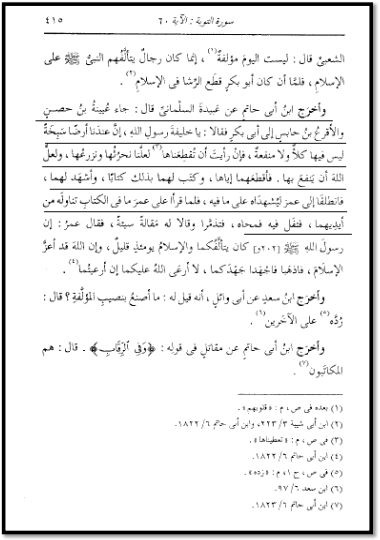 سورة التوبة : الآية ٦٠ ٤١٥
الشعبىِّ قال : ليست اليومَ مؤلفةٌ(١) ، إنما كان رجالٌ يتألَّفُهم النبىُّ ﷺ على
الإسلامِ ، فلمَّا أن كان أبو بكرٍ قطَع الرِّشا فى الإسلامِ(٢) .
وأخرَج ابنُ أبى حاتمٍ عن عَبيدةَ السلْمانىِّ قال : جاء عُيينةُ بنُ حصنٍ
والأقرعُ بنُ حابسٍ إلى أبى بكرٍ فقالا : يا خليفةَ رسولِ اللهِ ، إنَّ عندَنا أرضًا سَبِخَةً
ليس فيها كلأٌ ولا منفعةٌ ، فإنْ رأيتَ أن تُقطِعَناها(٣) لعلَّنا نحرُثُها ونزرعُها ، ولعلَّ
اللهَ أن يَنفعَ بها . فأقطَعهما إياها ، وكتَب لهما بذلك كتابًا ، وأشهَد لهما ،
فانطلَقا إلى عمرَ ليُشهِداه على ما فيه ، فلما قرآ على عمرَ ما فى الكتابِ تناوله من
أيديهما ، فتفَل فيه فمحاه ، فتذمَّرا وقالا له مقالةً سيئةً ، فقال عمرُ : إن
رسولَ اللهِ ﷺ [٢٠٢و] كان يتألَّفُكما والإسلامُ يومئذٍ قليلٌ ، وإن اللهَ قد أعزَّ
الإسلامَ ، فاذهبا فاجهَدا جَهْدَكما ، لا أرعَى اللهُ عليكما إن أرعيتُما(٤) .
وأخرَج ابنُ سعدٍ عن أبى وائلٍ ، أنه قيل له : ما أصنعُ بنصيبِ المؤلَّفةِ ؟ قال :
رُدَّه(٥) على الآخَرين(٦) .
وأخرَج ابنُ أبى حاتمٍ عن مقاتلٍ فى قوله : ﴿وَفِي ٱلرِّقَابِ﴾ . قال : هم
المكاتَبون(٧) .
(١) بعده فى ص ، م : « قلوبهم » .
(٢) ابن أبى شيبة ٣/ ٢٢٣، وابن أبى حاتم ٦/ ١٨٢٢.
(٣) فى ص ، م : « تعطيناها » .
(٤) ابن أبى حاتم ٦/ ١٨٢٢.
(٥) فى ص ، ح ١، م : « زده » .
(٦) ابن سعد ٦/ ٩٧.
(٧) ابن أبى حاتم ٦/ ١٨٢٣.